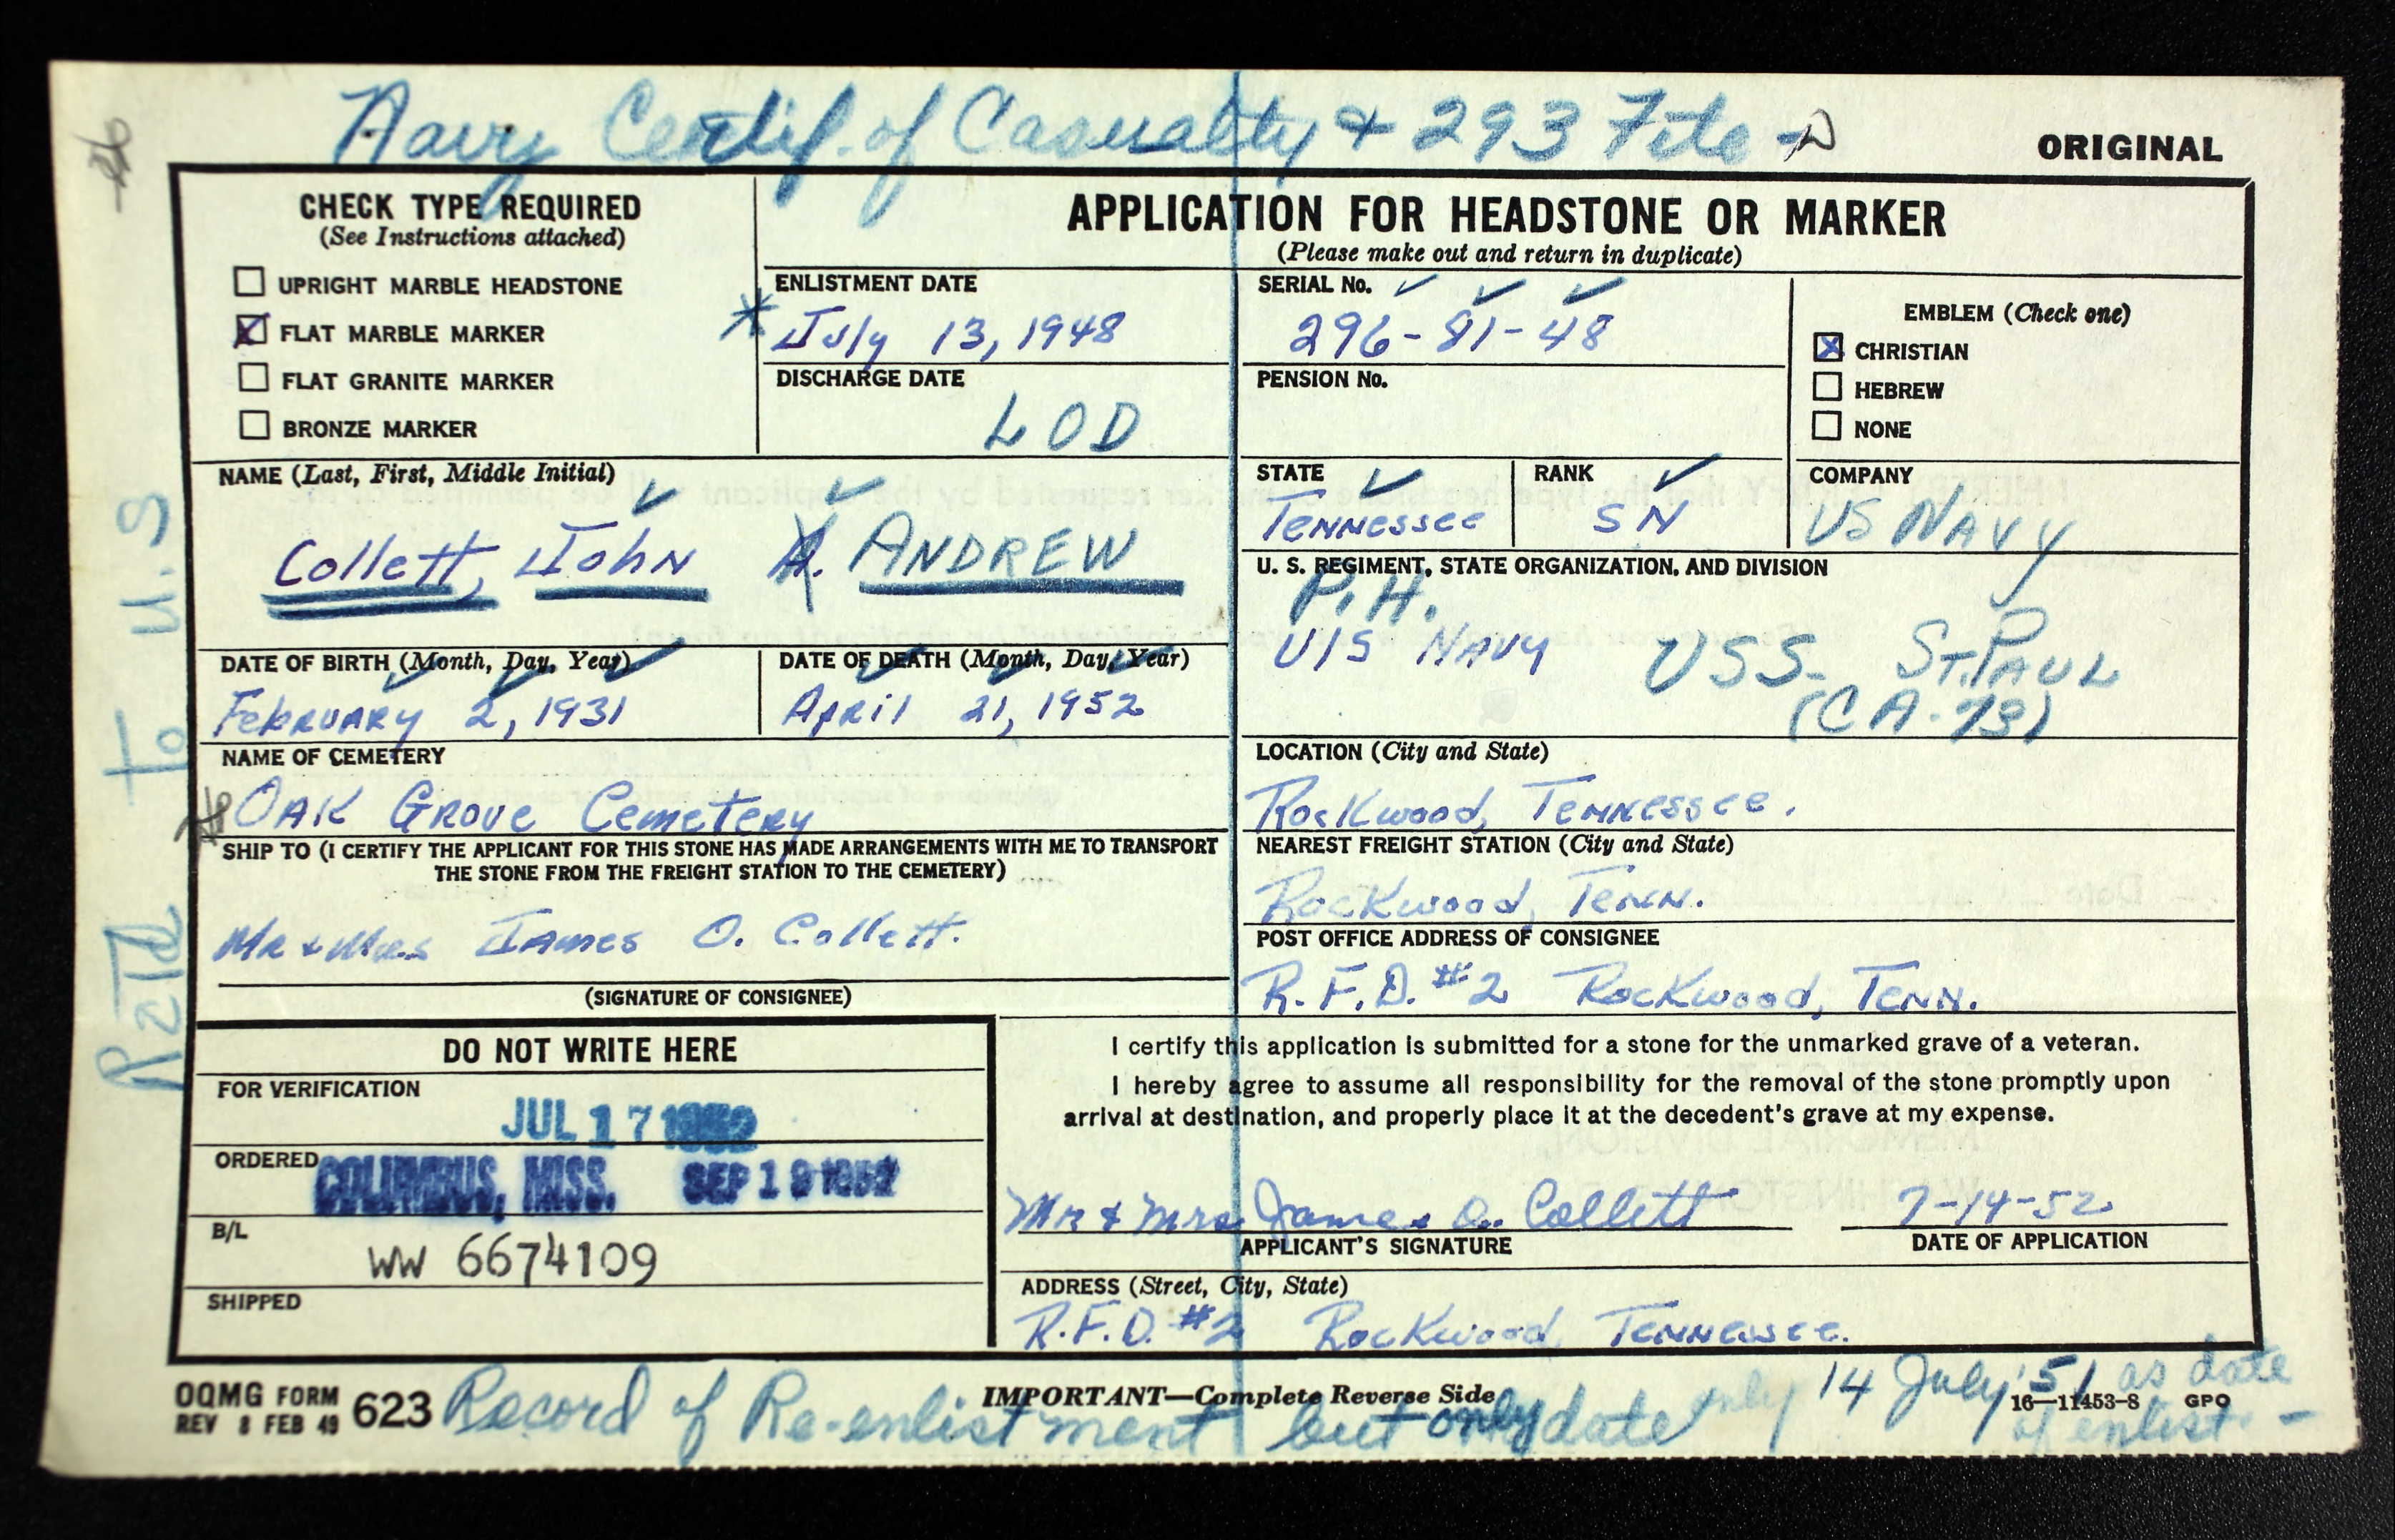 Navy Certif. of Casualty & 293 File
ORIGINAL
CHECK TYPE REQUIRED
(See Instructions attached)
UPRIGHT MARBLE HEADSTONE
X FLAT MARBLE MARKER
FLAT GRANITE MARKER
BRONZE MARKER
APPLICATION FOR HEADSTONE OR MARKER
(Please make out and return in duplicate)
ENLISTMENT DATE
* July 13, 1948
DISCHARGE DATE
LOD
SERIAL No.
296-81-48
PENSION No.
EMBLEM (Check one)
X CHRISTIAN
HEBREW
NONE
NAME (Last, First, Middle Initial)
Collett, John A. ANDREW
STATE
Tennessee
RANK
SN
COMPANY
US NAVY
U. S. REGIMENT, STATE ORGANIZATION, AND DIVISION
P.H.
U/S NAVY USS. ST. PAUL
(CA-73)
DATE OF BIRTH (Month, Day, Year)
February 2, 1931
DATE OF DEATH (Month, Day, Year)
April 21, 1952
NAME OF CEMETERY
OAK GROVE Cemetery
LOCATION (City and State)
Rockwood, Tennessee.
SHIP TO (I CERTIFY THE APPLICANT FOR THIS STONE HAS MADE ARRANGEMENTS WITH ME TO TRANSPORT
THE STONE FROM THE FREIGHT STATION TO THE CEMETERY)
Mr & Mrs James O. Collett.
(SIGNATURE OF CONSIGNEE)
NEAREST FREIGHT STATION (City and State)
Rockwood, Tenn.
POST OFFICE ADDRESS OF CONSIGNEE
R.F.D. #2 Rockwood, Tenn.
DO NOT WRITE HERE
FOR VERIFICATION
JUL 17 1952
ORDERED
COLUMBUS, MISS. SEP 19 1952
B/L
WW 6674109
SHIPPED
I certify this application is submitted for a stone for the unmarked grave of a veteran.
I hereby agree to assume all responsibility for the removal of the stone promptly upon
arrival at destination, and properly place it at the decedent's grave at my expense.
Mr & Mrs James O. Collett
APPLICANT'S SIGNATURE
7-14-52
DATE OF APPLICATION
ADDRESS (Street, City, State)
R.F.D. #2 Rockwood, Tennessee.
OQMG FORM
REV 8 FEB 49 623
IMPORTANT—Complete Reverse Side
16—11453-8 GPO
Record of Re-enlistment but only date 14 July '51 as date
of enlist. -
Retd to U.S